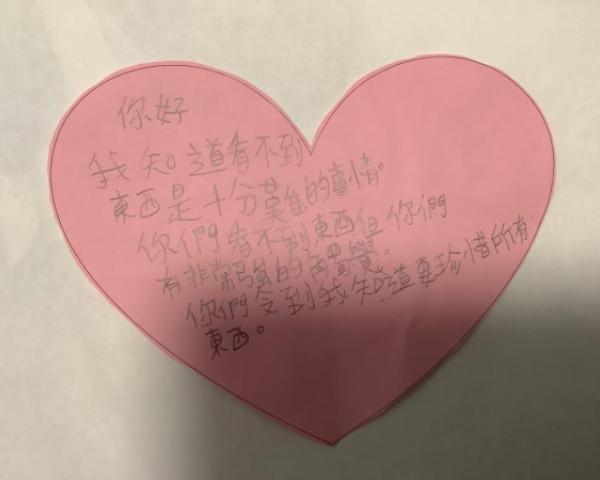 你好
我知道看不到
東西是十分難的事情。
你們看不到東西但你們
有非常強的觸覺。
你們令到我知道要珍惜所有
東西。